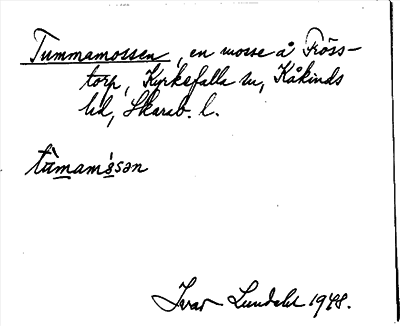 Tummamossen, en mosse å Fröss-
torp, Kyrkefalla sn, Kåkinds
hd, Skarab. l.
tùmamɔ́sən
Ivar Lundahl 1948.